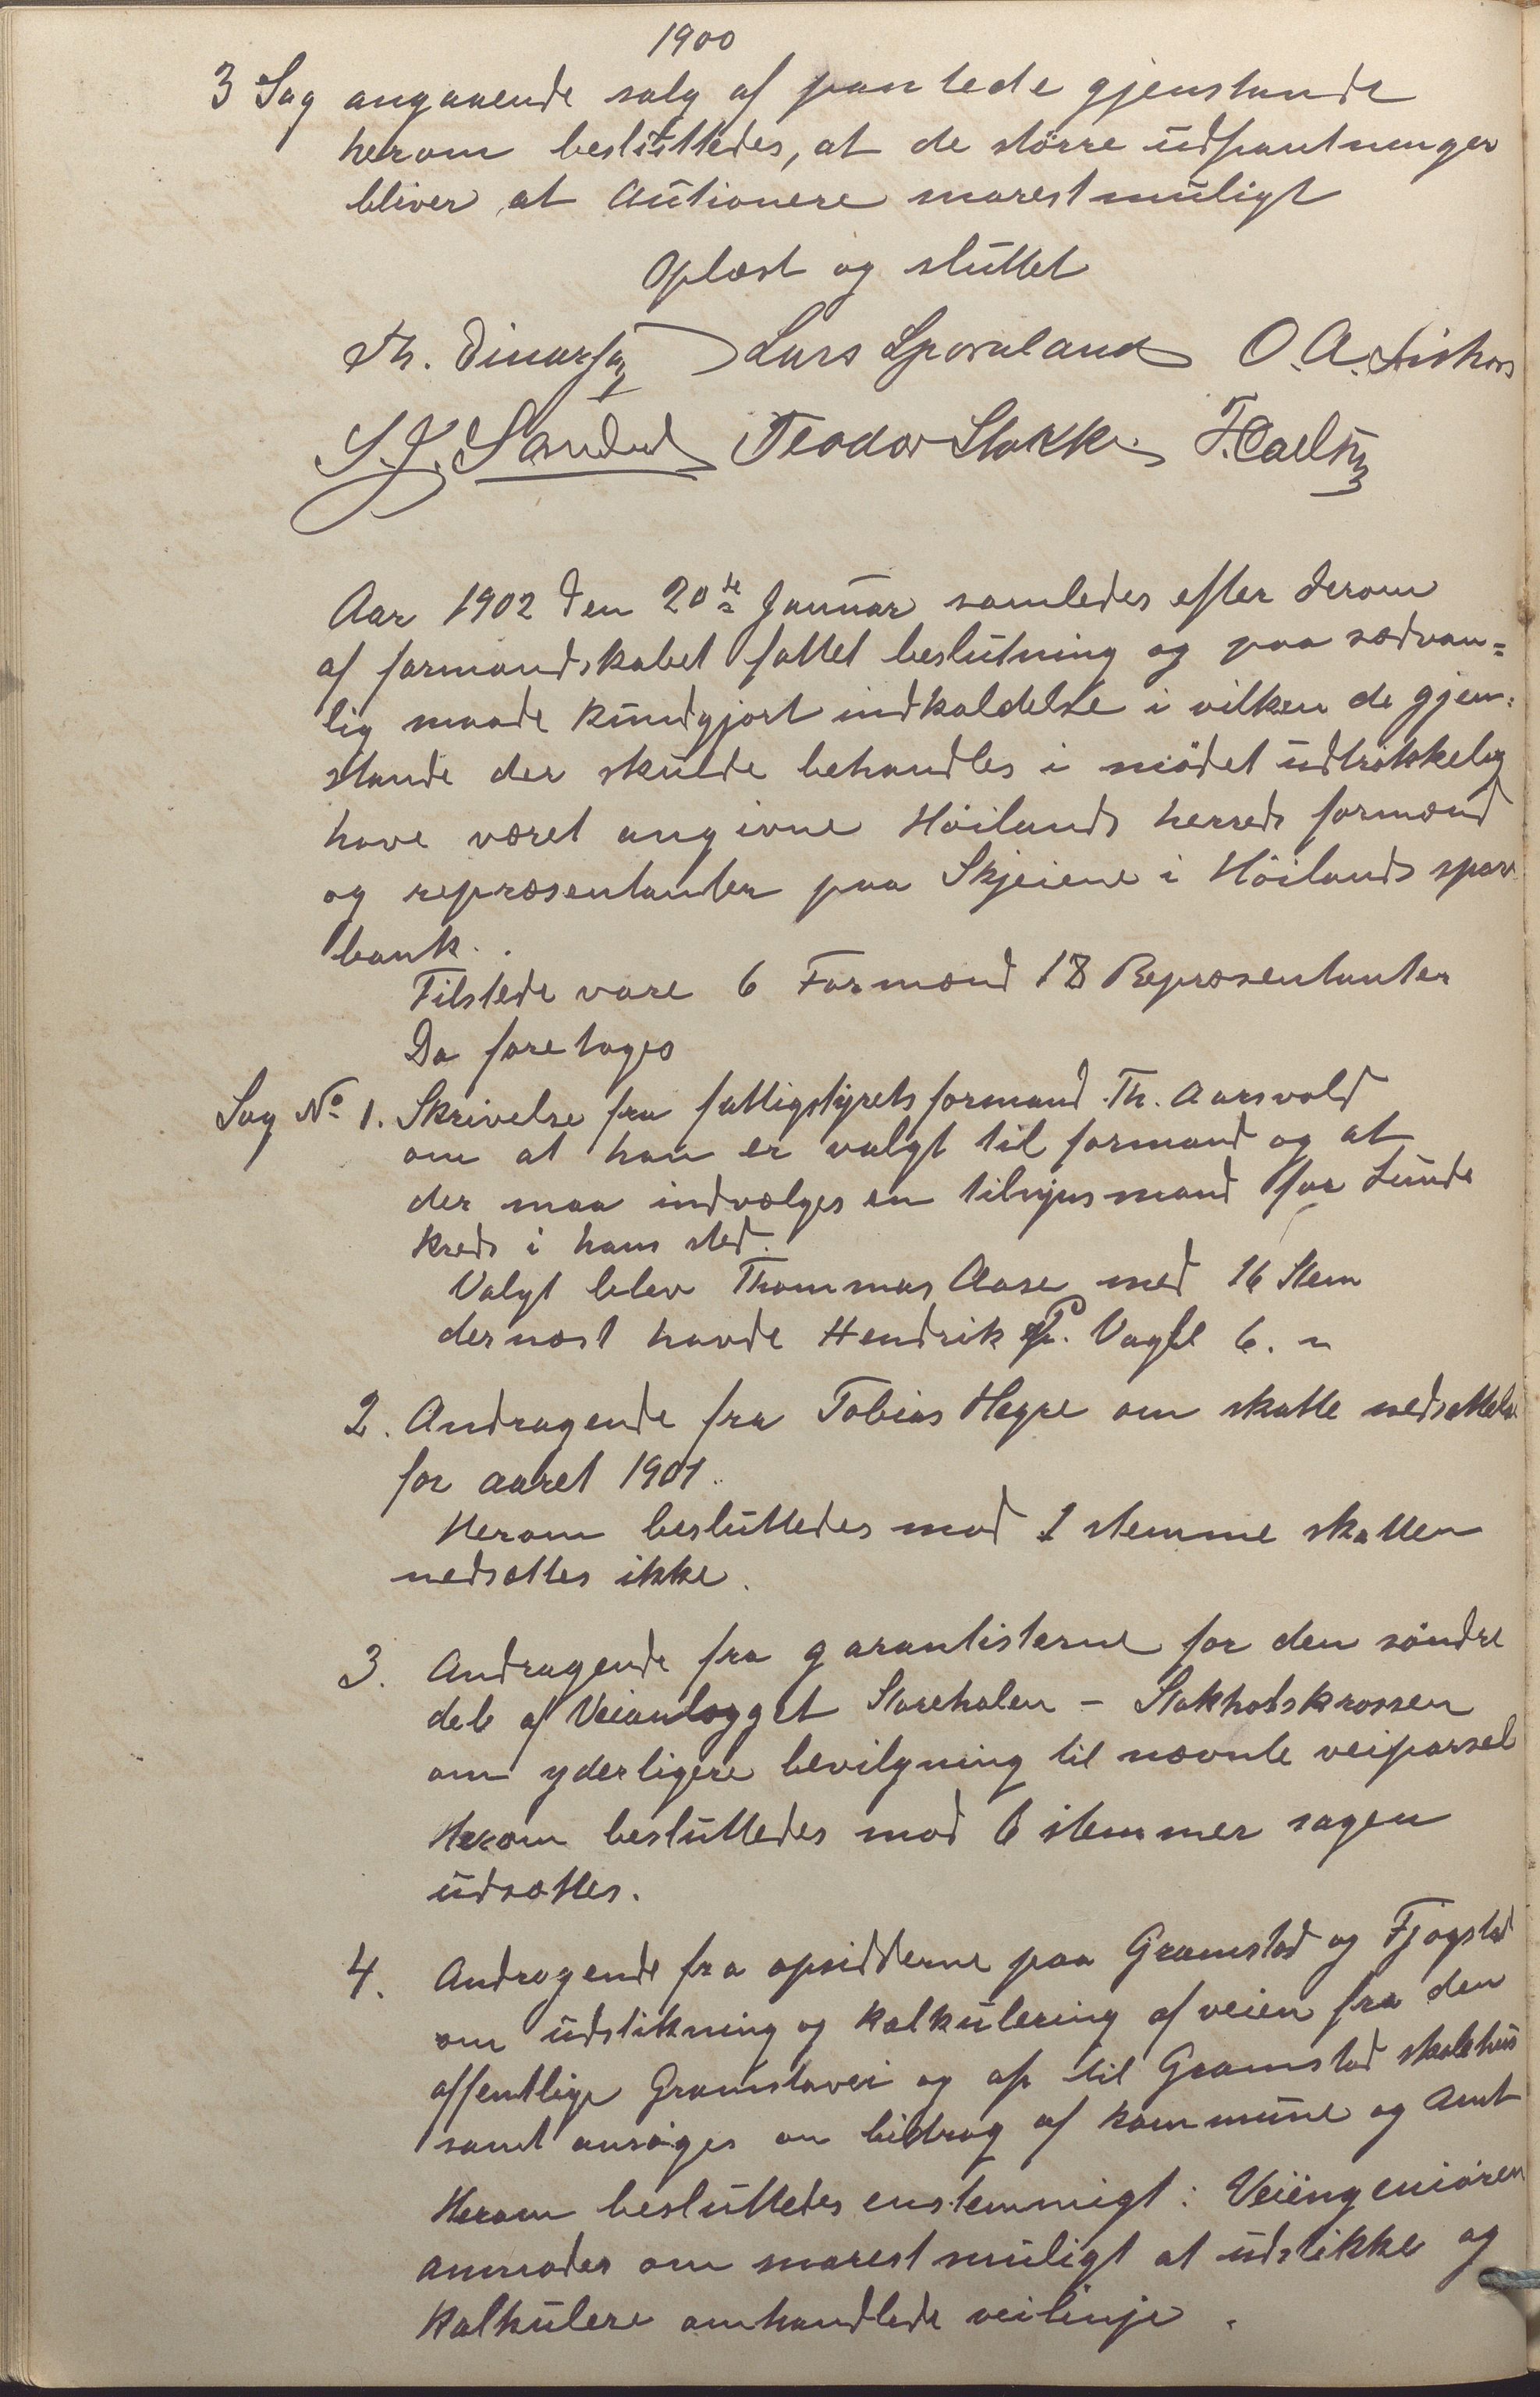 1900
3 Sag angaaende salg af pantede gjenstande
herom besluttedes, at de större udpantninger
bliver at Autionere snarest muligt
Oplæst og sluttet
Th. Lars O. A.
S. J. Teodor Stokke
Aar 1902 den 20de Januar samledes efter derom
af formandskabet fattet beslutning og paa sædvan=
lig maade kundgjort indkaldelse i vilken de gjen=
stande der skulde behandles i mödet udtrökkelig
have været angivne Höilands herreds formænd
og repræsentanter paa Skjeiene i Höilands spare
bank.
Tilstede vare 6 Formænd 18 Repræsentanter
Da foretoges
Sag No 1. Skrivelse fra fattigstyrets formand Th. Aarsvold
om at han er valgt til formand og at
der maa indvælges en tilsynsmand for Lunde
kreds i hans sted.
Valgt blev Thommas Aase med 16 Stem
dernæst havde Hendrik P. Vagle 6. "
2. Andragende fra Tobias Hegre om skatte nedsettelse
for aaret 1901.
Herom besluttedes mod 1 stemme skatten
nedsættes ikke.
3. Andragende fra garantisterne for den söndre
del af Veianlægget Storehalen - Stokholskrossen
om yderligere bevilgning til nævnte veiparsel
Herom besluttedes mod 6 stemmer sagen
udsættes.
4. Andragende fra opsidderne paa Gramstad og Fjogstad
om udstikning og kalkulering af veien fra den
offentlige Gramstavei og op til Gramstad skolehus
samt ansöges om bidrag af kommune og Amt
Herom besluttedes enstemmigt: Veiingeniören
anmodes om snarest muligt at udstikke og
kalkulere omhandlede veilinje.